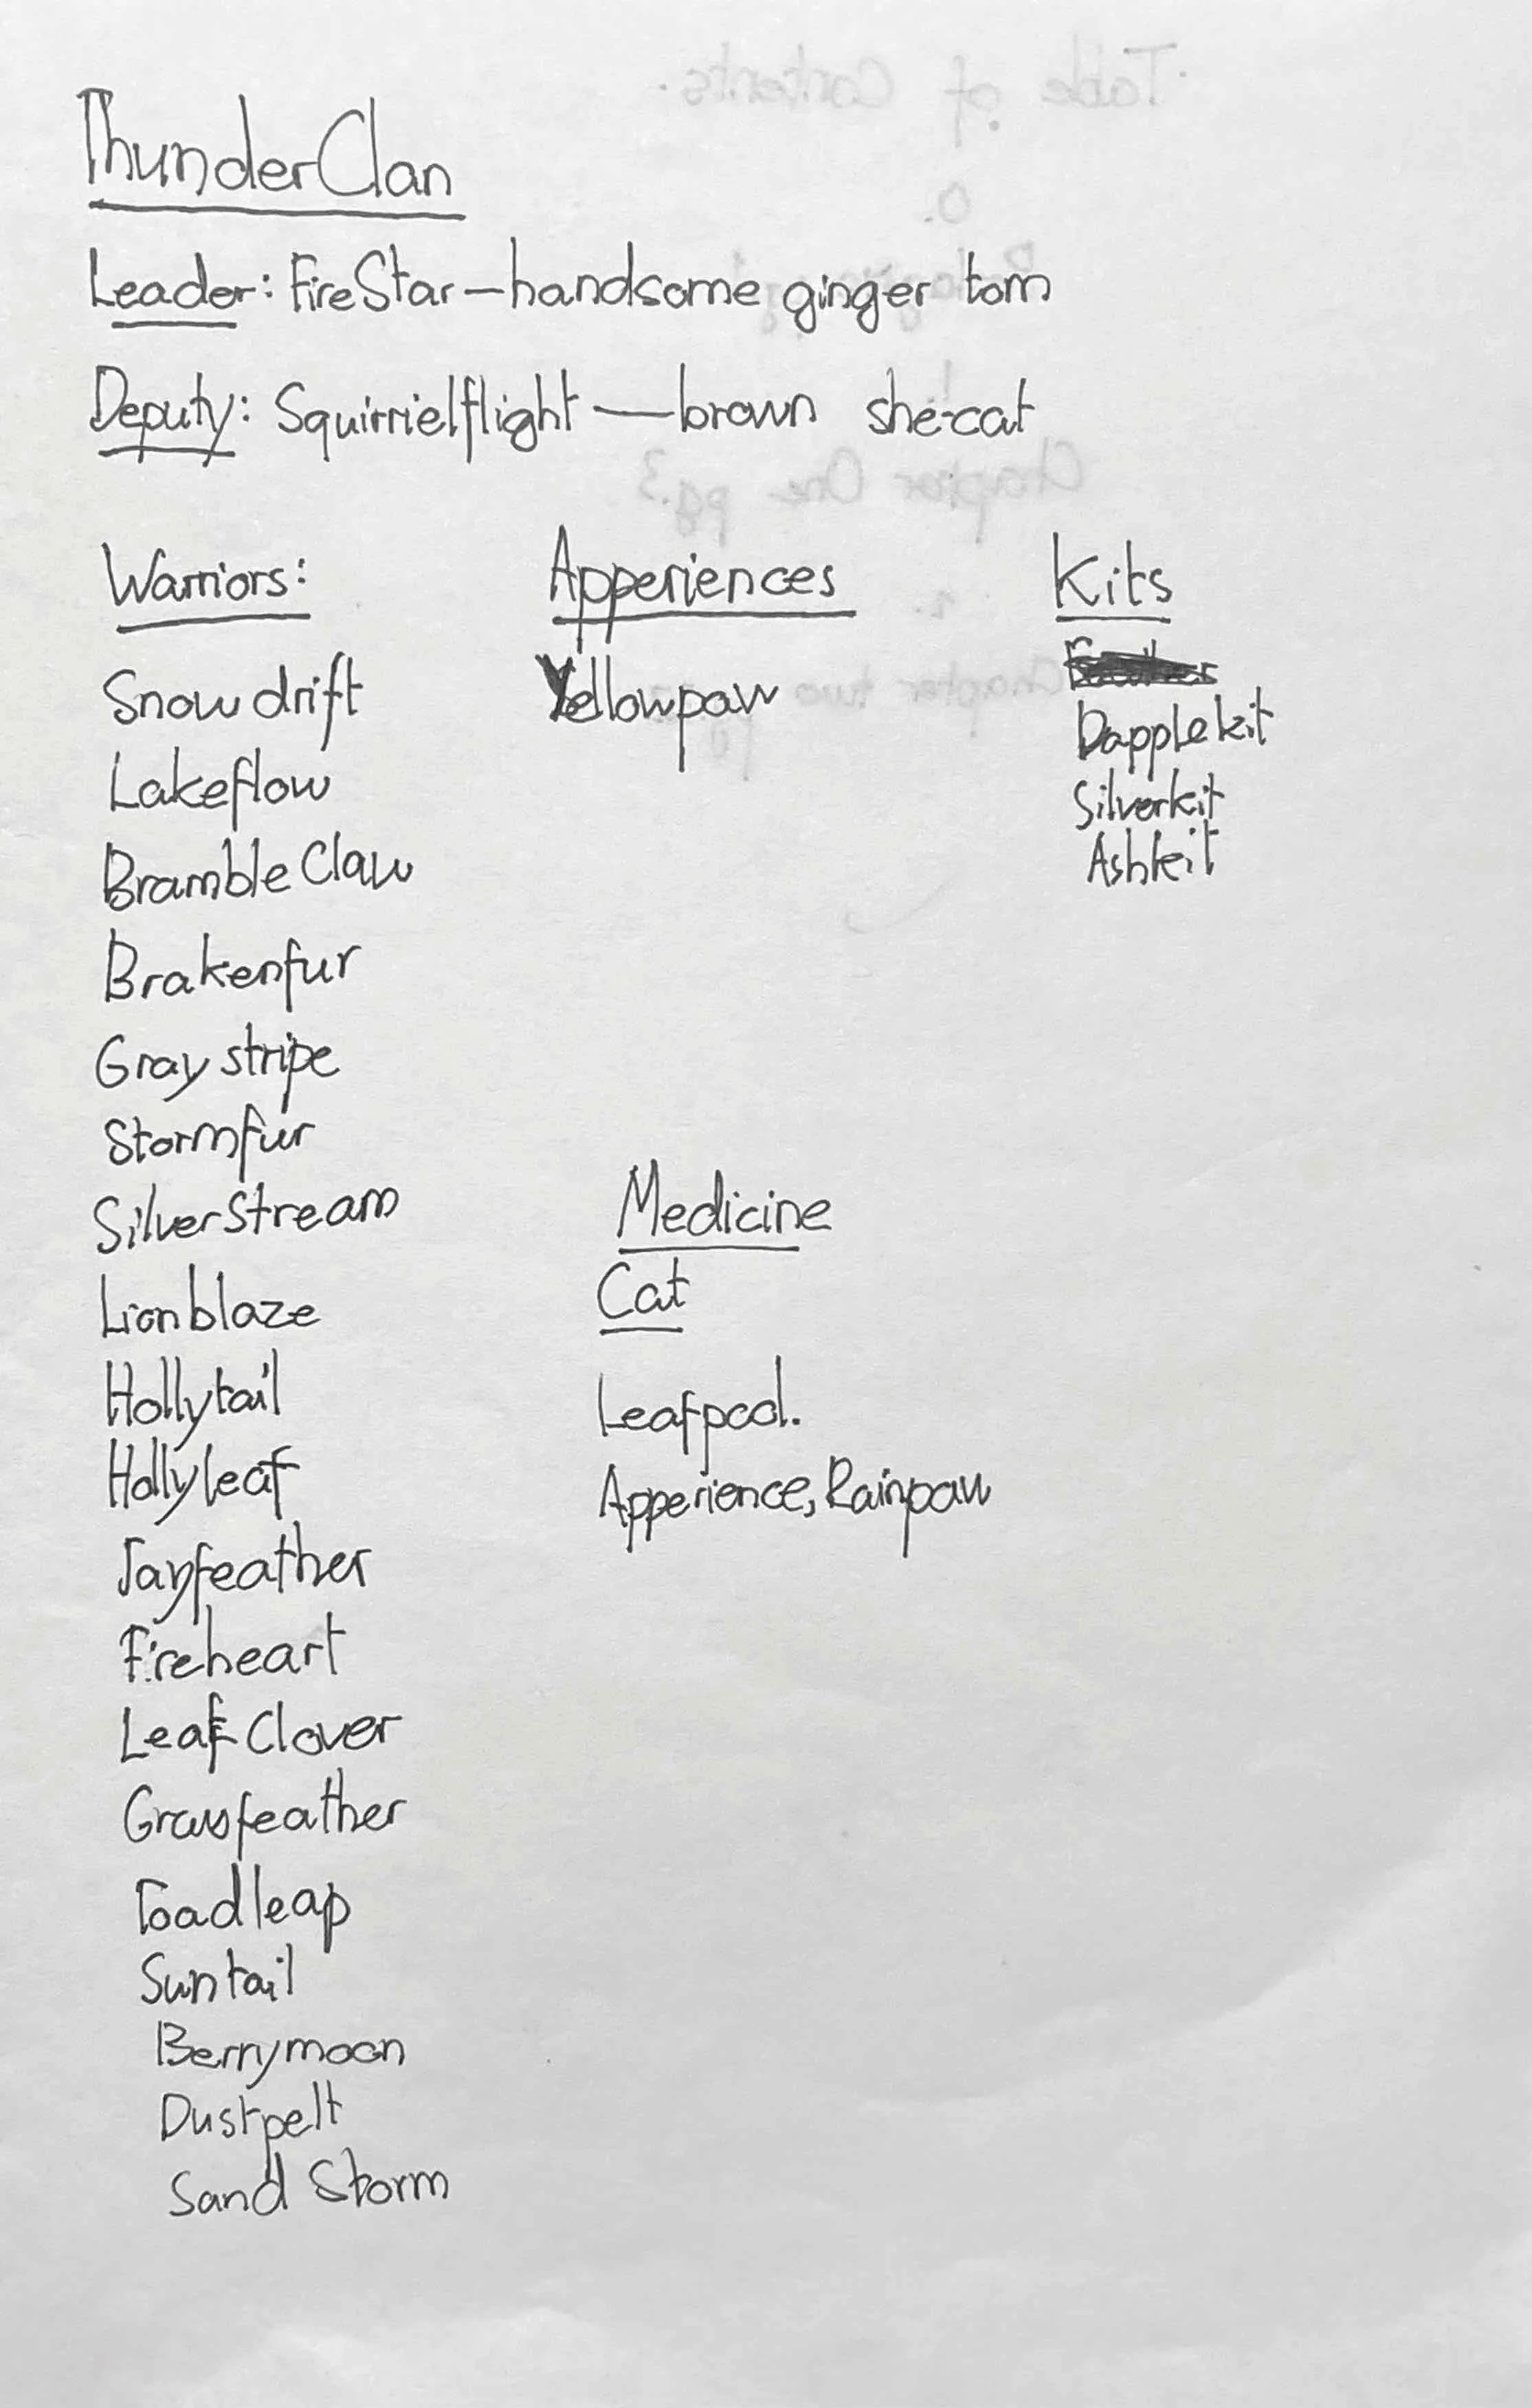 ThunderClan
Leader: FireStar—handsome ginger tom
Deputy: Squirrielflight—brown she-cat
Warriors:
Snowdrift
Lakeflow
BrambleClaw
Brakenfur
Gray stripe
Stormfur
SilverStream
Lionblaze
Hollytail
Hollyleaf
Jayfeather
Fireheart
Leaf Clover
Grassfeather
Toadleap
Suntail
Berrymoon
Dustpelt
Sand Storm
Apperiences
Yellowpaw
Kits
Dapplekit
Silverkit
Ashkit
Medicine
Cat
Leafpool.
Apperience, Rainpaw
Table of Contents.
0.
Chapter One pg.3
2.
Chapter two
pg